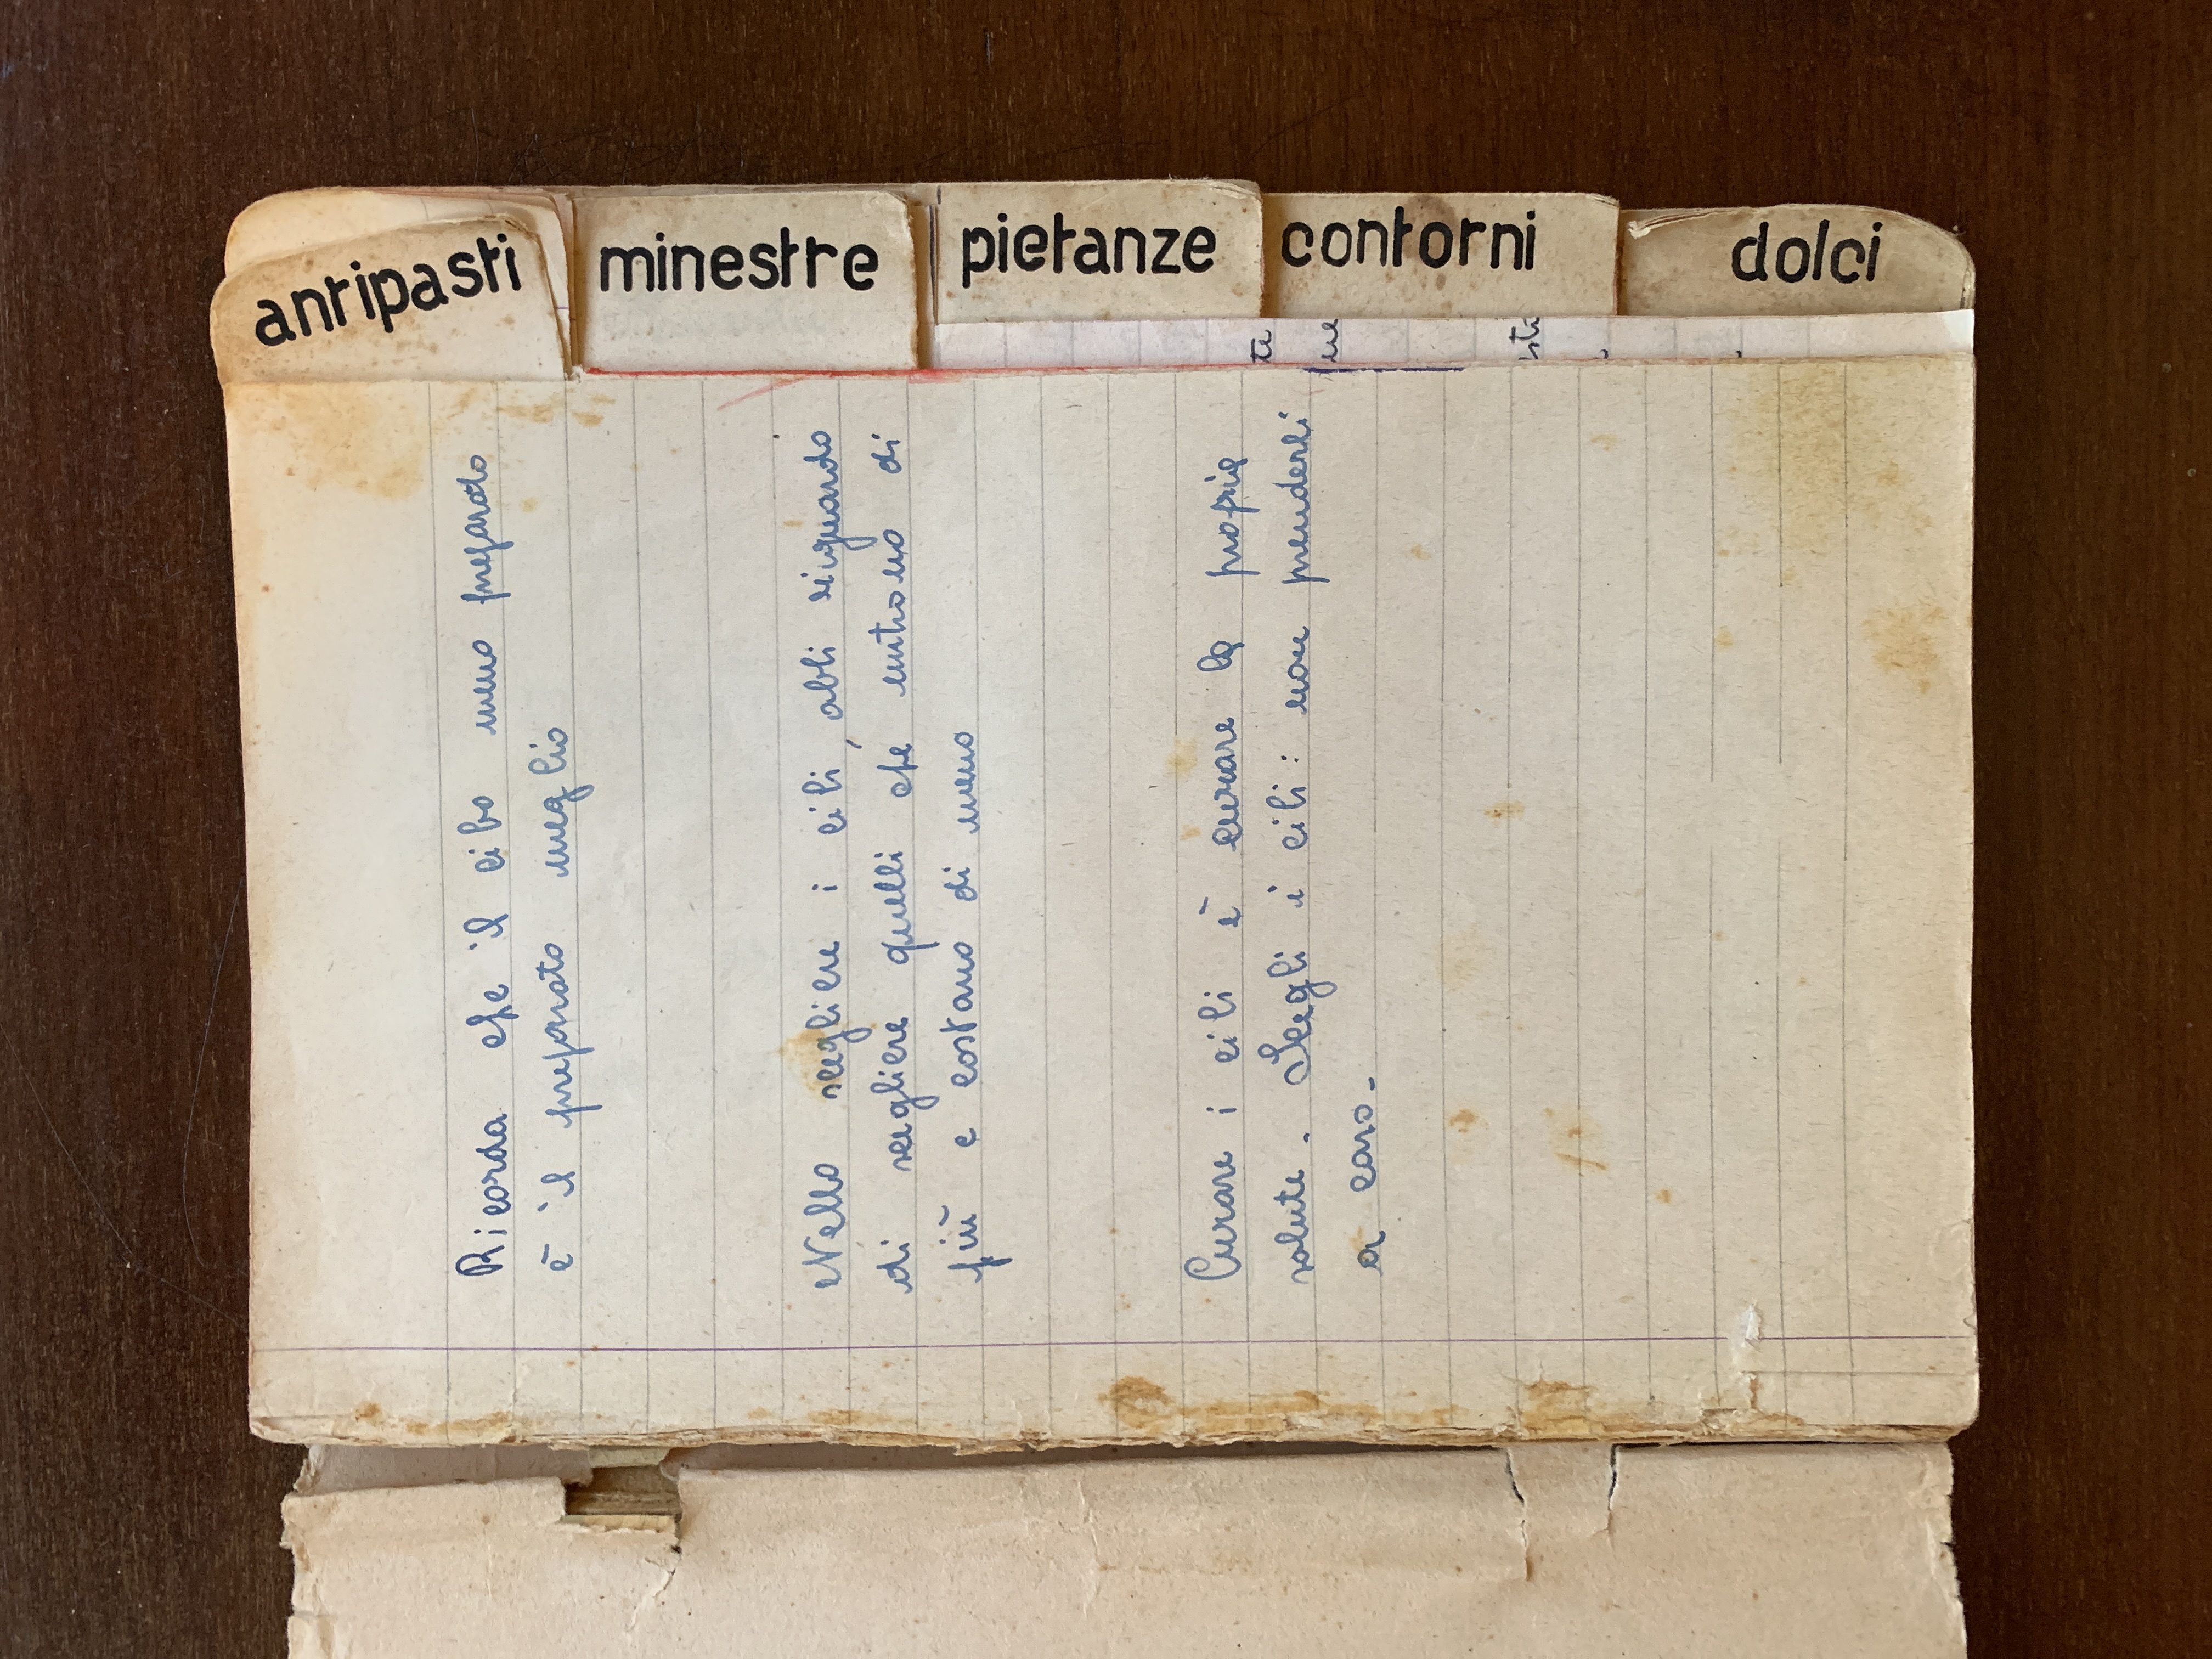 Ricorda che il cibo meno preparato
è il preparato meglio
Nello scegliere i cibi, abbi riguardo
di scegliere quelli che nutrono di
più e costano di meno
Curare i cibi è curare la propria
salute. Scegli i cibi: non prenderli
a caso.
antipasti
minestre
pietanze
contorni
dolci
te
ne